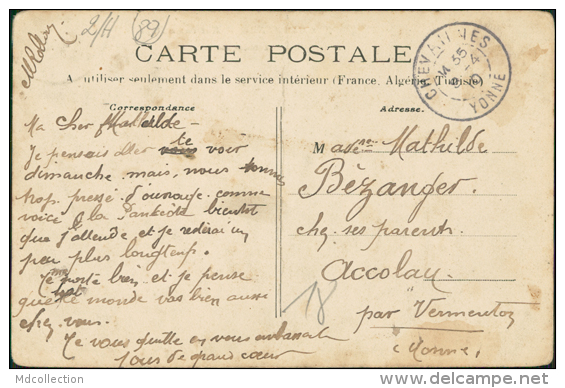 2/H (89)
CARTE POSTALE
A utiliser seulement dans le service intérieur (France, Algérie, Tunisie)
CHEVANNES
YONNE
Correspondance
Adresse.
Ma cher Mathilde -
Je pensais aller te voir
dimanche mais, nous sommes
trop pressé d'ouvrage comme
voici la bientôt
que j'attende et je resterai un
peu plus longtemps.
Je me porte bien et je pense
que le monde vas bien aussi
chez vous.
Je vous quitte en vous embrassant
tous de grand cœur
M Melle Mathilde
Bézanger.
chez ses parents
Accolay
par Vermenton
(Yonne)
18
Mdcollection
© Copyright delcampe.net